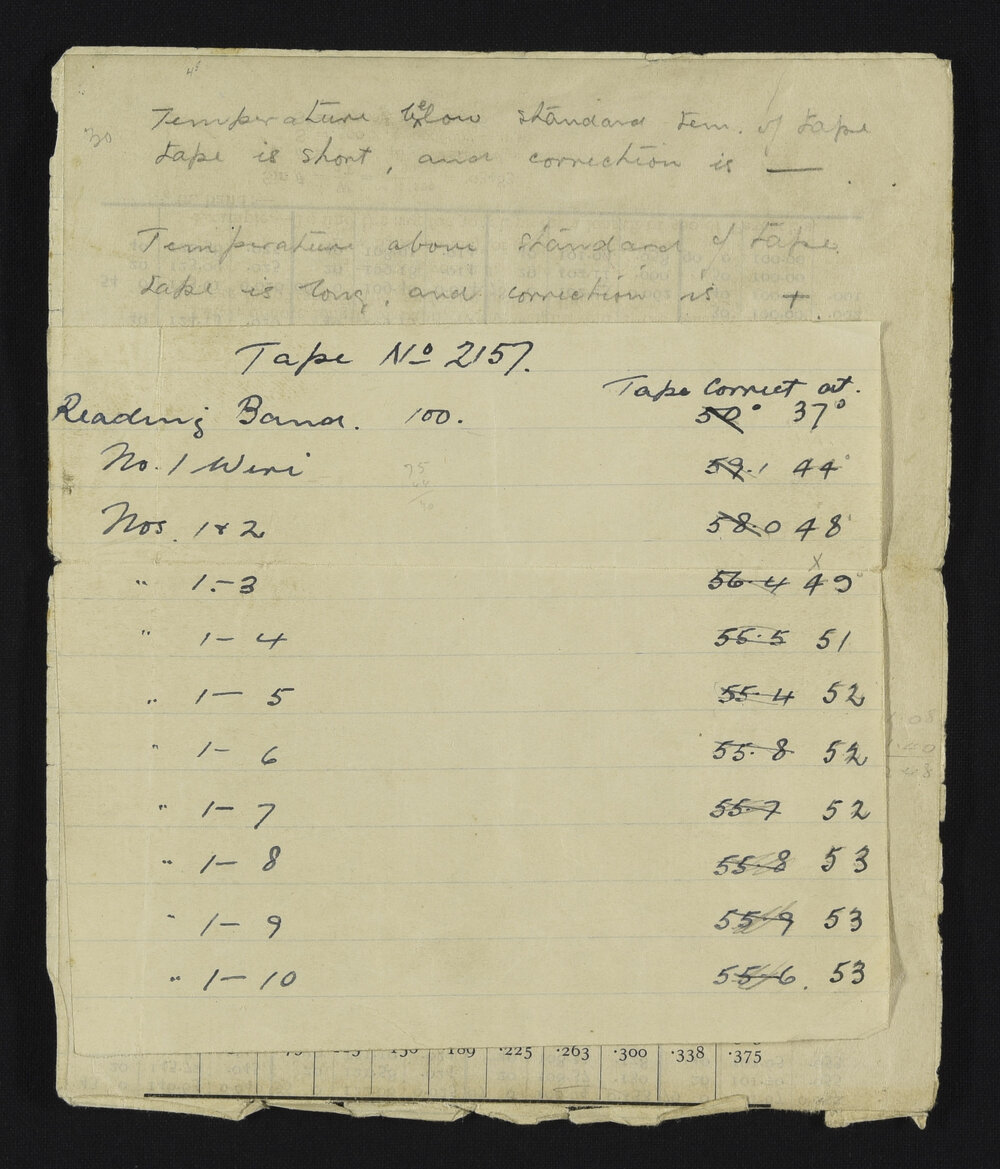 Temperature below standard tem. of tape
30 tape is short, and correction is —
Temperature above standard of tape
tape is long, and correction is +
Tape No 2157.
Tape Correct at.
Reading Band. 100. 50° 37°
No. 1 Weri 59.1 44°
Nos. 1 & 2 58.0 48
" 1-3 56.4 49°
" 1-4 55.5 51
" 1-5 55.4 52
" 1-6 55.8 52
" 1-7 55.7 52
" 1-8 55.8 53
" 1-9 55.9 53
" 1-10 55.6. 53
.189 .225 .263 .300 .338 .375